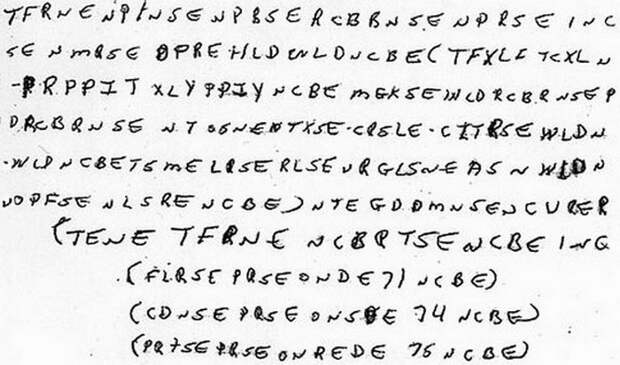 TFRNENPTNSENPBSERCBBNSENPRSEINC
SENMRSEOPREHLDWLDNCBE(TFXLFTCXLN
-PRPPIT XLYPPIYNCBE MGKSEWLDRCBRNSEP
DRCBRNSE NTOGNENTXSE-CRSLE-CITRSEWLDN
-WLDNCBETSMELRSERLSENRGLSNEASNWLDN
NOPFSENLSRENCBE)NTEGDDMNSENCURER
(TENE TFRNE NCBRTSENCBE ING
(FLRSE PRSE ONDE 71 NCBE)
(CDNSE PRSE ONSDE 74 NCBE)
(PRTSE PRSE ONREDE 75 NCBE)